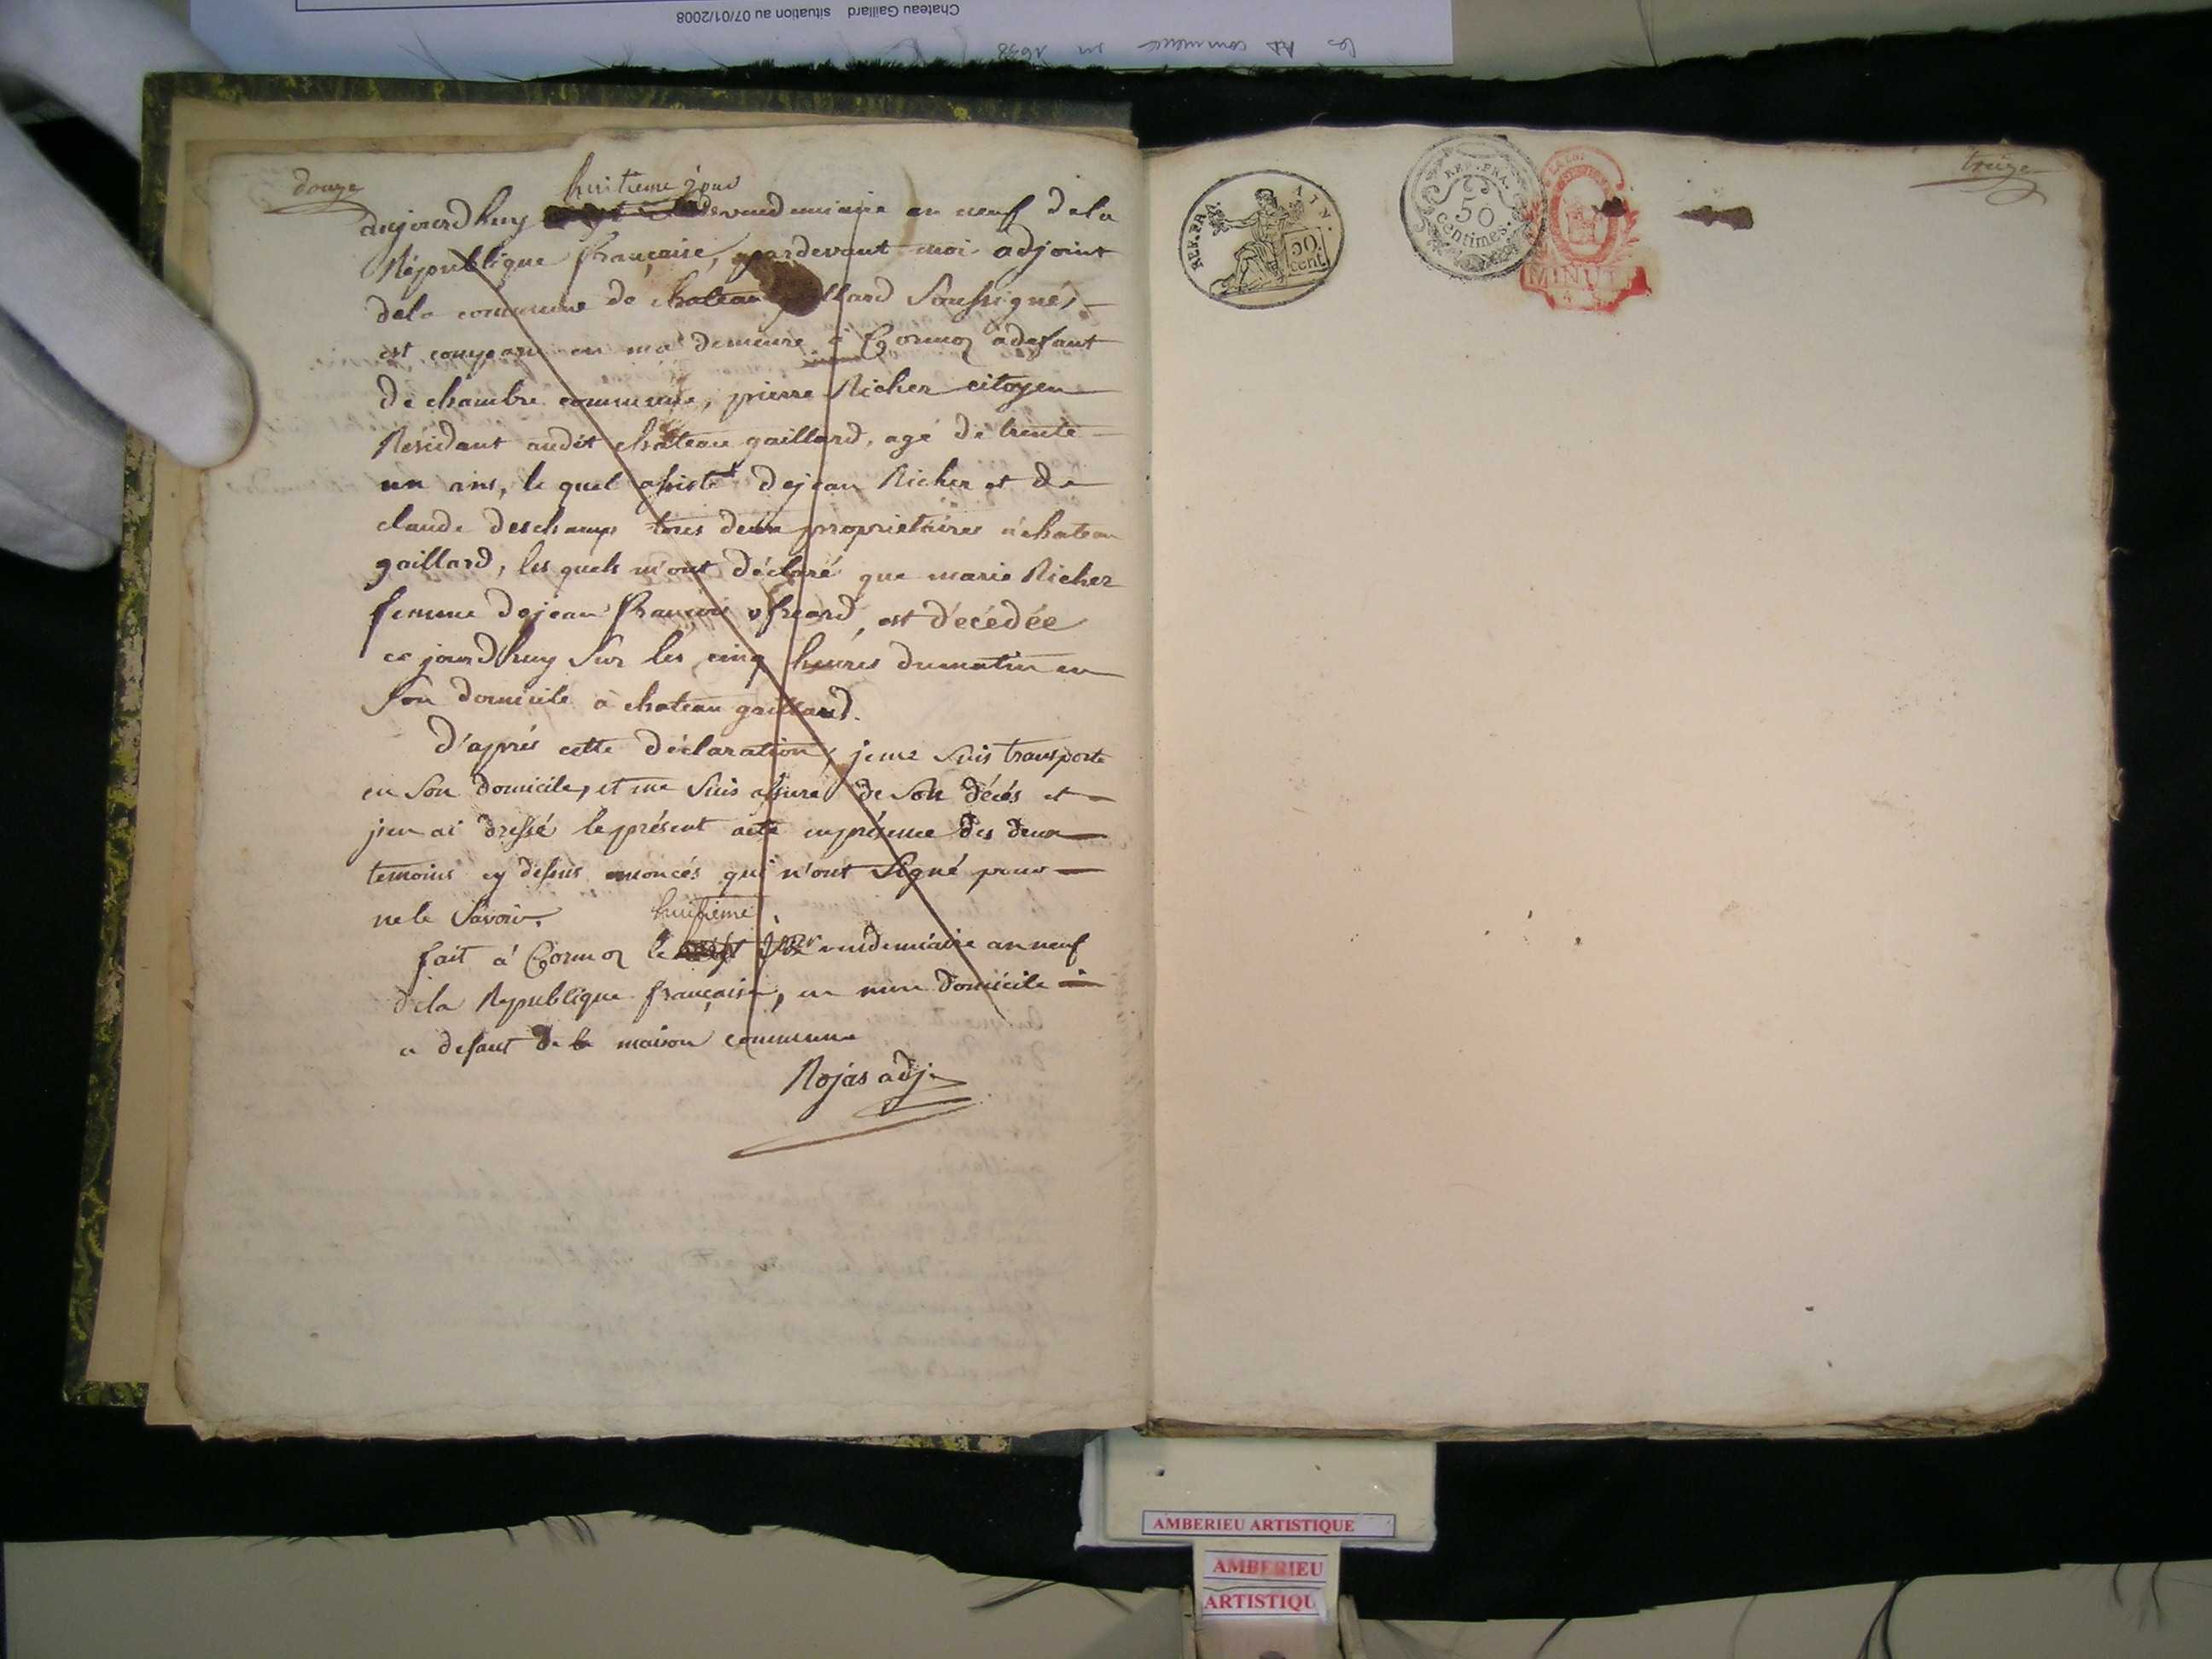 Chateau Gaillard situation au 07/01/2008
douze
huitieme jour
aujourdhuy devendemiaire an neuf dela
République française, pardevant moi adjoint
dela commune de chateau gaillard Soussigné,
est comparu en ma demeure à Cormoz adefaut
de chambre commune, pierre Richer citoyen
Résidant audit chateau gaillard, agé de trente
un ans, le quel assisté dejean Richer et de
claude deschamps tous deux proprietaires à chateau
gaillard, les quels m'ont déclaré que marie Richer
femme dejean françois, est décédée
ce jourdhuy Sur les cinq heures dumatin en
Son domicile à chateau gaillard.
D'après cette déclaration, jeme Suis transporté
en Son domicile, et me Suis assuré de Son décés et
jen ai dressé leprésent acte enprésence des deux
temoins cy dessus enoncés qui n'ont Signé pour
ne le Savoir.
huitieme
fait à Cormoz le vendemiaire an neuf
dela République française, en mon domicile
a defaut de maison commune
Rojas adj.
REP. FRA.
50
cent.
REP. FRA.
50
centimes.
MINUT
treize
AMBERIEU ARTISTIQUE
AMBERIEU
ARTISTIQU